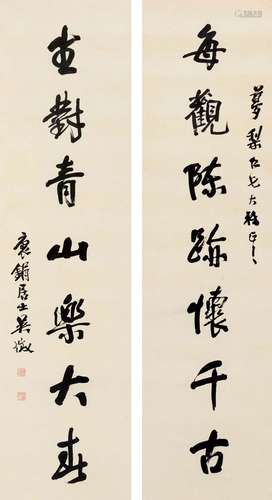 夢梨仁兄大雅正之
每觀陳跡懷千古
坐對青山樂大
裒鋗居士吳徵